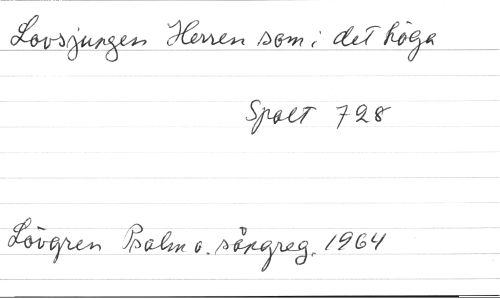 Lovsjungen Herren som i det höga
Spalt 728
Lövgren Psalm o. sångreg. 1964